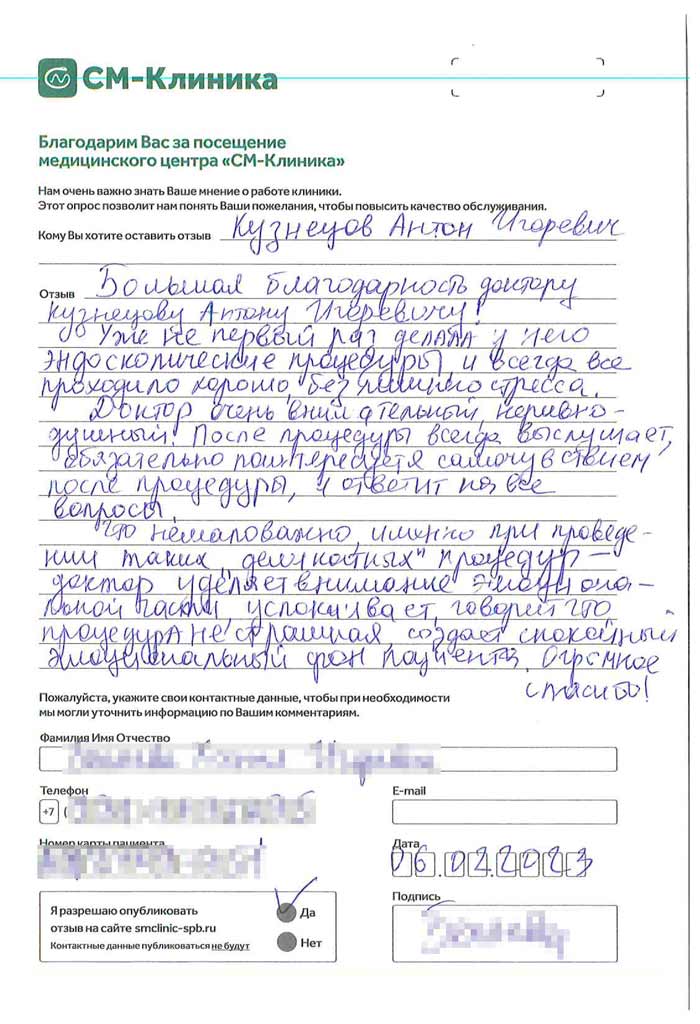 СМ-Клиника
Благодарим Вас за посещение
медицинского центра «СМ-Клиника»
Нам очень важно знать Ваше мнение о работе клиники.
Этот опрос позволит нам понять Ваши пожелания, чтобы повысить качество обслуживания.
Кому Вы хотите оставить отзыв Кузнецов Антон Игоревич
Отзыв Большая благодарность доктору
Кузнецову Антону Игоревичу!
Уже не первый раз делала у него
эндоскопические процедуры, и всегда все
проходило хорошо, без лишнего стресса.
Доктор очень внимательный, неравно-
душный! После процедуры всегда выслушает,
обязательно поинтересуется самочувствием
после процедуры, и ответит на все
вопросы.
Что немаловажно, именно при проведе-
нии таких „деликатных" процедур —
доктор уделяет внимание эмоциона-
льной части, успокаивает, говорит что
процедура не страшная, создает спокойный
эмоциональный фон пациента. Огромное
спасибо!
Пожалуйста, укажите свои контактные данные, чтобы при необходимости
мы могли уточнить информацию по Вашим комментариям.
Фамилия Имя Отчество
Телефон
E-mail
+7 (
Номер карты пациента
Дата
06.02.2023
Я разрешаю опубликовать
отзыв на сайте smclinic-spb.ru
Контактные данные публиковаться не будут
Да
Нет
Подпись